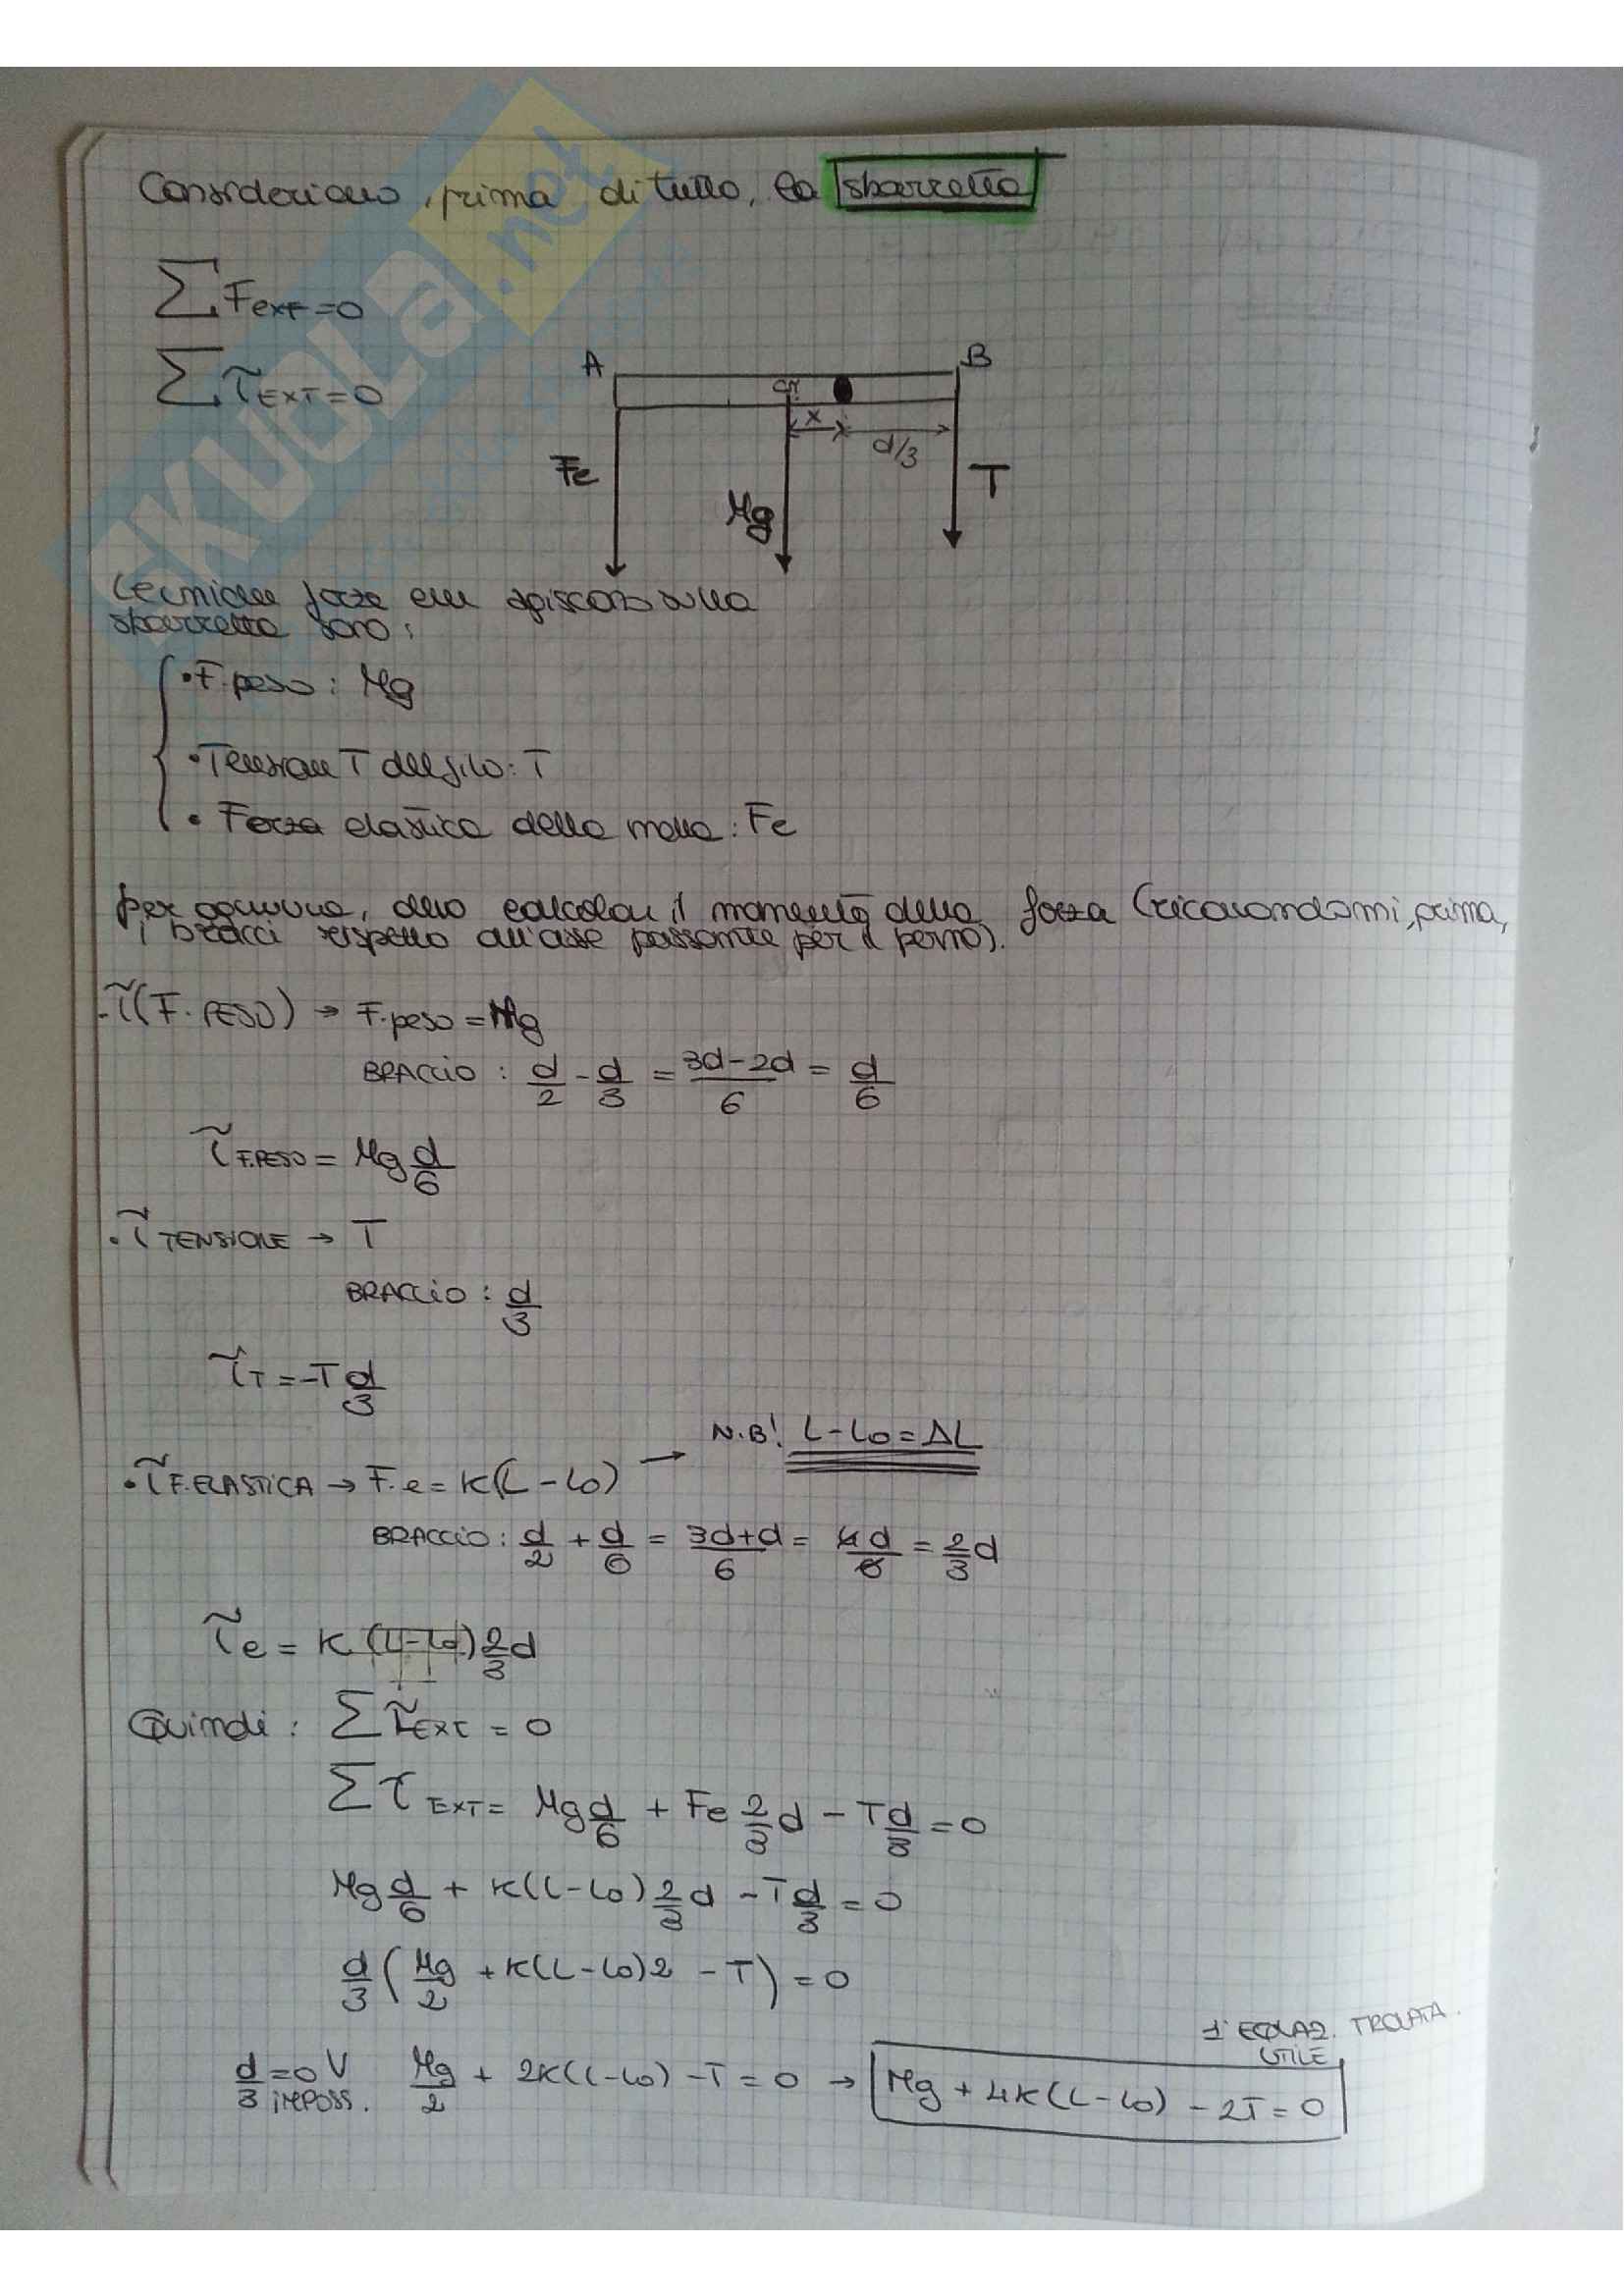 Consideriamo, prima di tutto, la sbarretta
∑ Fext = 0
∑ τEXT = 0
A B
CM
x d/3
Fe Mg T
Le uniche forze che agiscono sulla
sbarretta sono:
• F. peso: Mg
• Tensione T del filo: T
• Forza elastica della molla: Fe
per ognuna, devo calcolare il momento della forza (ricavandomi, prima,
i bracci rispetto all'asse passante per il perno).
- τ(F. PESO) → F. peso = Mg
BRACCIO: d/2 - d/3 = (3d-2d)/6 = d/6
τF.PESO = Mg d/6
• τTENSIONE → T
BRACCIO: d/3
τT = -T d/3
N.B! L-L0 = ΔL
• τF.ELASTICA → F.e = K(L-L0) →
BRACCIO: d/2 + d/6 = (3d+d)/6 = 4d/6 = 2/3 d
τe = K(L-L0) 2/3 d
Quindi: ∑ τEXT = 0
∑ τEXT = Mg d/6 + Fe 2/3 d - T d/3 = 0
Mg d/6 + K(L-L0) 2/3 d - T d/3 = 0
d/3 (Mg/2 + K(L-L0)2 - T) = 0
1° EQUAZ. TROVATA
UTILE
d/3 = 0 V Mg/2 + 2K(L-L0) - T = 0 → Mg + 4K(L-L0) - 2T = 0
IMPOSS.
SKUOLA.net